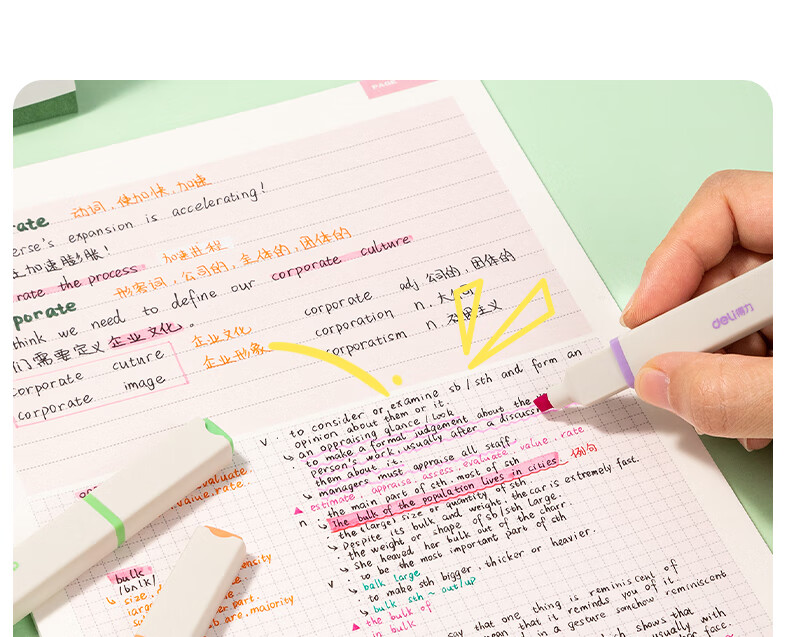 PAGE
rate 动词，使加快，加速
erse's expansion is accelerating!
加速膨胀!
rate the process 加速进程
porate 形容词，公司的，主体的，团体的
think we need to define our corporate culture
们需要定义企业文化。
corporate cuture 企业文化
corporate image 企业形象
corporate adj 公司的，团体的
corporation n.
corporatism n.
deli得力
v. to consider or examine sb/sth and form an
opinion about them or it.
↳ an appraising glance/look
to make a formal judgement about the
person's work, usually after a discuss
them about it.
↳ managers must appraise all staff
▲ estimate, appraise, assess, evaluate, value, rate
n the main part of sth, most of sth
↳ The bulk of the population lives in cities. 例句
the (large) size or quantity of sth.
↳ Despite its bulk and weight, the car is extremely fast.
the weight or shape of sb/sth large.
↳ She heaved her bulk out of the chair.
to be the most important part of sth
v. bulk large
to make sth bigger, thicker or heavier.
↳ bulk sth ~ out/up
▲ the bulk of
in bulk
say that one thing is reminiscent of
mean that it reminds you of it.
d in a gesture somehow reminiscent
ch shows that
usually with
or face.
evaluate
value.rate.
bulk
/bʌlk/
↳ size,
large
ensity
er part.
are, majority